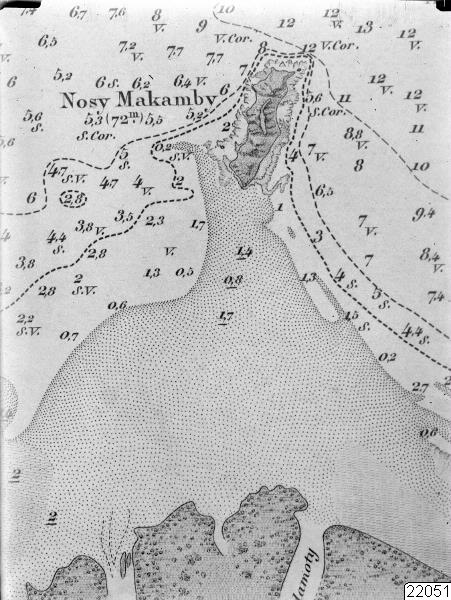 7,4 6,7 7,6 8 V. 10 12 12 V. 13 12 V.
6,5 7,2 V. 7,7 9 V. Cor. 7,7 8 12 V. Cor.
5,2 6 S. 6,2 6,4 V. 7 12 V. 12 V.
Nosy Makamby 6
5,6 S. 5,3 (72m) 5,5 5,2 5,6 S. Cor. 11 11
S. Cor. 2 8,8 V.
5 S. 0,2 S.V. 4 7 V. 8 10
4,7 S.V. 4,7 4 V. 2
6 2,8 6,5
3,5 2,3 1,7 1 7 V. 9,4
4 4,4 S. 3,8 V. 3
3,8 2,8 V. 1,4 7 8,4 V.
1,3 0,5 0,8 1,3 4 S.
2,8 2 S.V. 5 S. 7,4
2,2 S.V. 0,6 1,7 1,5 S.
0,7 4,4 S.
0,2
2,7
0,6
2
2
lamoty
22051